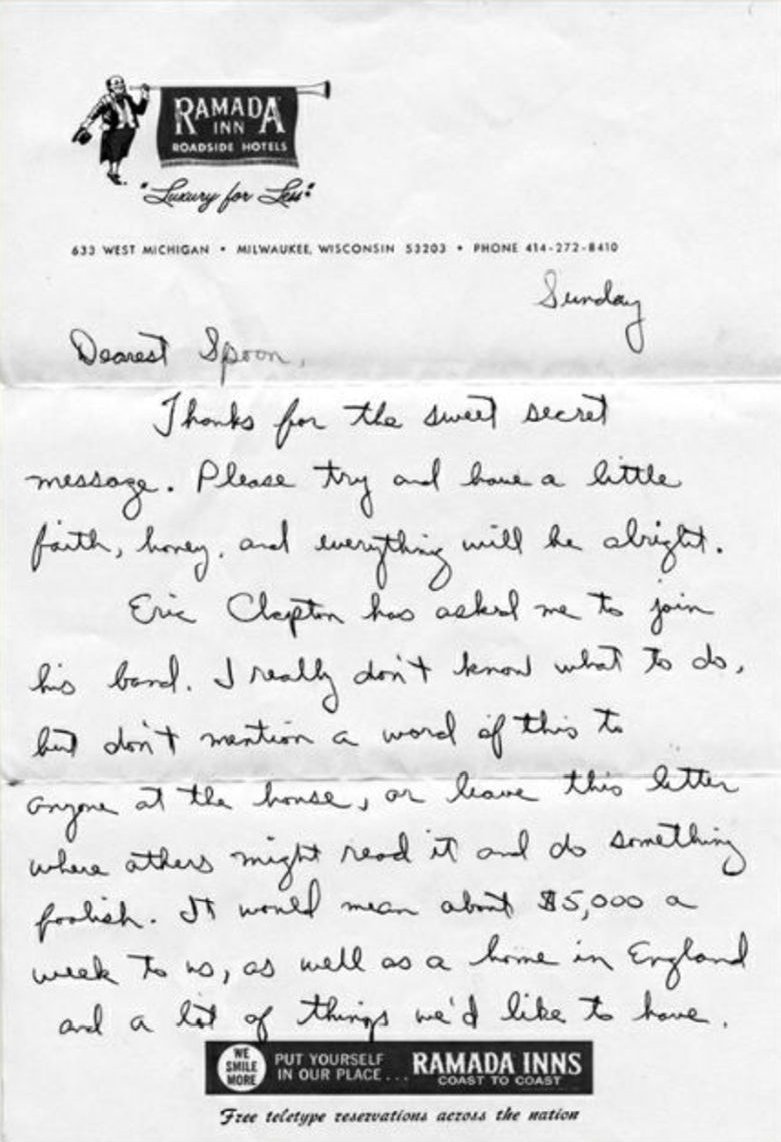 RAMADA
INN
ROADSIDE HOTELS
"Luxury for Less"
633 WEST MICHIGAN • MILWAUKEE, WISCONSIN 53203 • PHONE 414-272-8410
Sunday
Dearest Spoon,
Thanks for the sweet secret
message. Please try and have a little
faith, honey, and everything will be alright.
Eric Clapton has asked me to join
his band. I really don't know what to do,
but don't mention a word of this to
anyone at the house, or leave this letter
where others might read it and do something
foolish. It would mean about $5,000 a
week to us, as well as a home in England
and a lot of things we'd like to have.
WE
SMILE
MORE
PUT YOURSELF
IN OUR PLACE...
RAMADA INNS
COAST TO COAST
Free teletype reservations across the nation